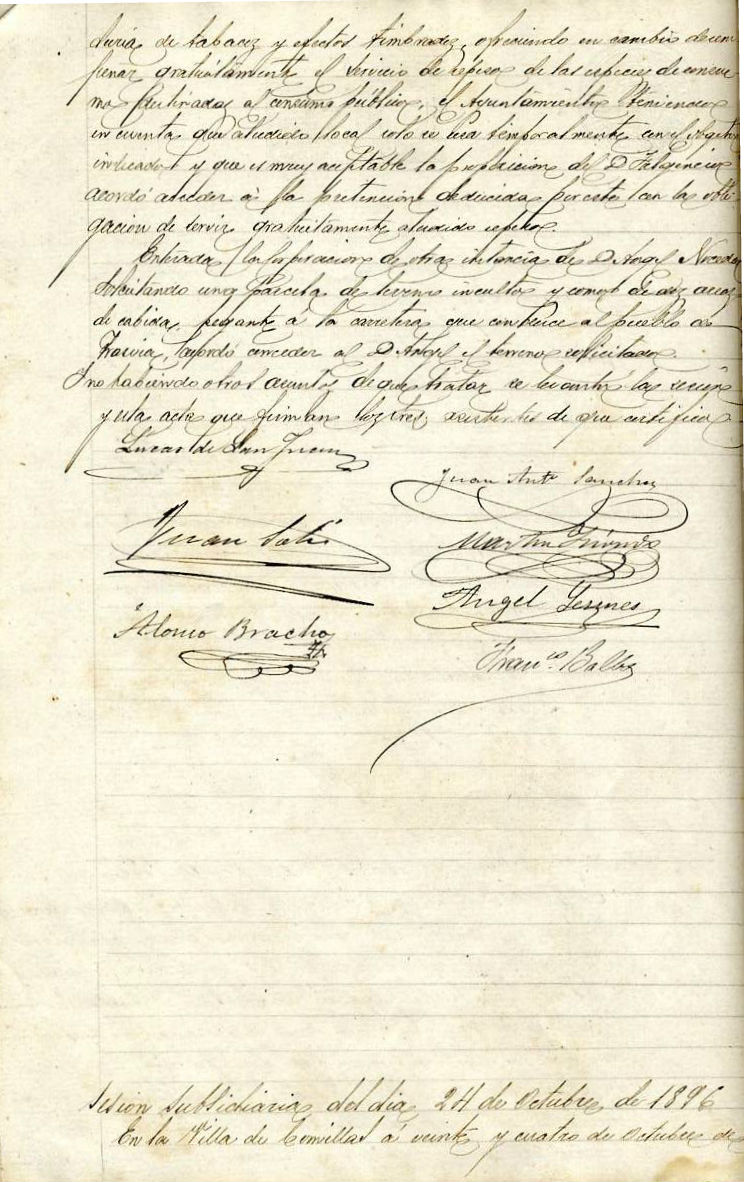 duria de tabacos y efectos timbrados, ofreciendo en cambio desem
peñar gratuitamente el servicio de repeso de las especies de consu
mo destinadas al consumo público, el Ayuntamiento teniendo
en cuenta que aludido local solo se usa temporalmente con el objeto
indicado y que es muy aceptable la proposicion del D. Fulgencio
acordó acceder á la pretencion deducida por este con la obli
gacion de servir gratuitamente aludido repeso.
Enterada la Corporacion de otra instancia de D. Angel
solicitando una parcela de terreno inculto y como de diez areas
de cabida, pegante á la carretera que conduce al pueblo de
Trasvia, acordó conceder al D. Angel el terreno solicitado.
Y no habiendo otros asuntos de que tratar se levantó la sesion
y esta acta que firman los Sres. asistentes de que certifico
Lucas de San Juan
Juan Antº Sanchez
Juan
Martin
Angel
Alonso Bracho
Franco. Balbas
Sesion subsidiaria del dia 24 de Octubre de 1896
En la Villa de Comillas á veinte y cuatro de Octubre de